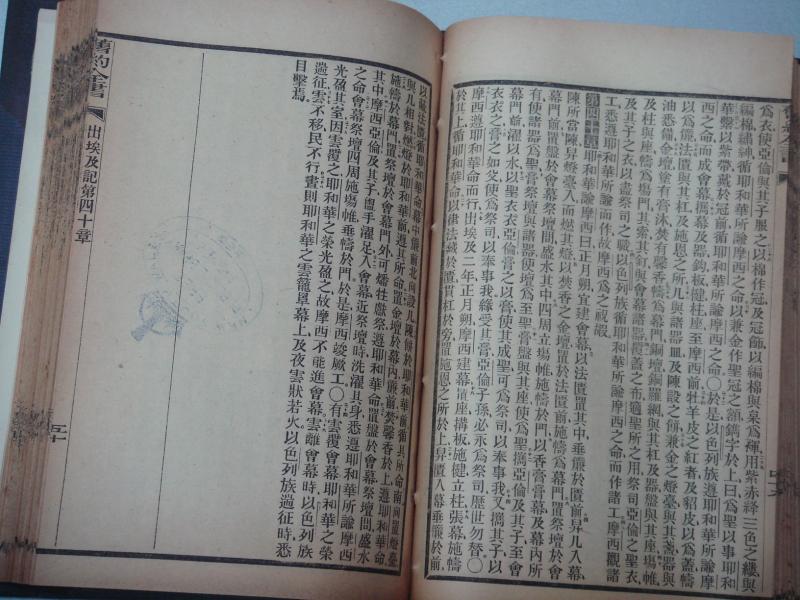 爲衣使亞倫與其子服之以棉作冠及冠飾以編棉與枲爲褌用紫赤絳三色之縷與
編棉繡紳循耶和華所諭摩西之命以兼金作聖冠之額鐫字於上曰爲聖以事耶和
華繫以紫帶戴於冠前循耶和華所諭摩西之命○於是以色列族循耶和華所諭摩
西之命而成會幕攜幕及器鈎板楗柱座至摩西前牡羊皮之紅者及貂皮以爲蓋幬
以爲儷法匱與其杠及施恩之所几與諸器皿及陳設之餅兼金之燈臺與其盞器與
油悉備金壇塗有膏沐焚有馨香幬爲幕門銅壇銅羅網與其杠及器盤與其座場帷
及柱與座幬爲場門其索其釘與會幕諸器覆蓋之布適聖所之用祭司亞倫之聖衣
其子之衣以盡祭司之職以色列族循耶和華所諭摩西之命而作諸工摩西觀諸
工悉遵耶和華所諭而作故摩西爲之祝嘏
第四十章 耶和華諭摩西曰正月朔宜建會幕以法匱置其中垂簾於匱前舁几入幕
陳所當陳舁燈臺入而燃其燈以焚香之金壇置於法匱前施幬爲幕門置燔祭壇於
幕門前置盤於會幕祭壇間盛水其中四周立場帷施幬於門以香膏膏幕及幕內所
有使諸器爲聖膏祭壇與諸器使壇爲至聖膏盤與其座使爲聖攜亞倫及其子至會
幕門前濯以水以聖衣衣亞倫膏之以膏使其成聖可爲祭司以奉事我又攜其子以
衣衣之膏之如父使爲祭司以奉事我緣受其膏亞倫子孫必永爲祭司歷世勿替○
摩西遵耶和華命而行出埃及二年正月朔摩西建幕置座搆板施楗立柱張幕施幬
於其上循耶和華命以律法藏於匱貫杠於旁置施恩之所於上舁匱入幕垂簾於前
以蔽法匱循耶和華命會幕中簾前北向設几陳餅於耶和華前循其所命南向置燈臺
與几相對燃燈於耶和華前遵其所命置金壇於幕內簾前焚馨香於上遵耶和華命
施幬於幕門置祭壇於會幕門外可燔牲獻祭遵耶和華命置盤於會幕祭壇間盛水
其中摩西亞倫及其子盥手濯足入會幕近祭壇時洗濯其身悉遵耶和華所諭摩西
之命會幕祭壇四周施場帷垂幬於門於是摩西竣厥工○有雲覆會幕耶和華之榮
光盈其室因雲覆之耶和華之榮光盈之故摩西不能進會幕雲離會幕時以色列族
遄征雲不移民不行晝則耶和華之雲籠罩幕上及夜雲狀若火以色列族遄征時悉
目擊焉
舊約全書 出埃及記第四十章 五十